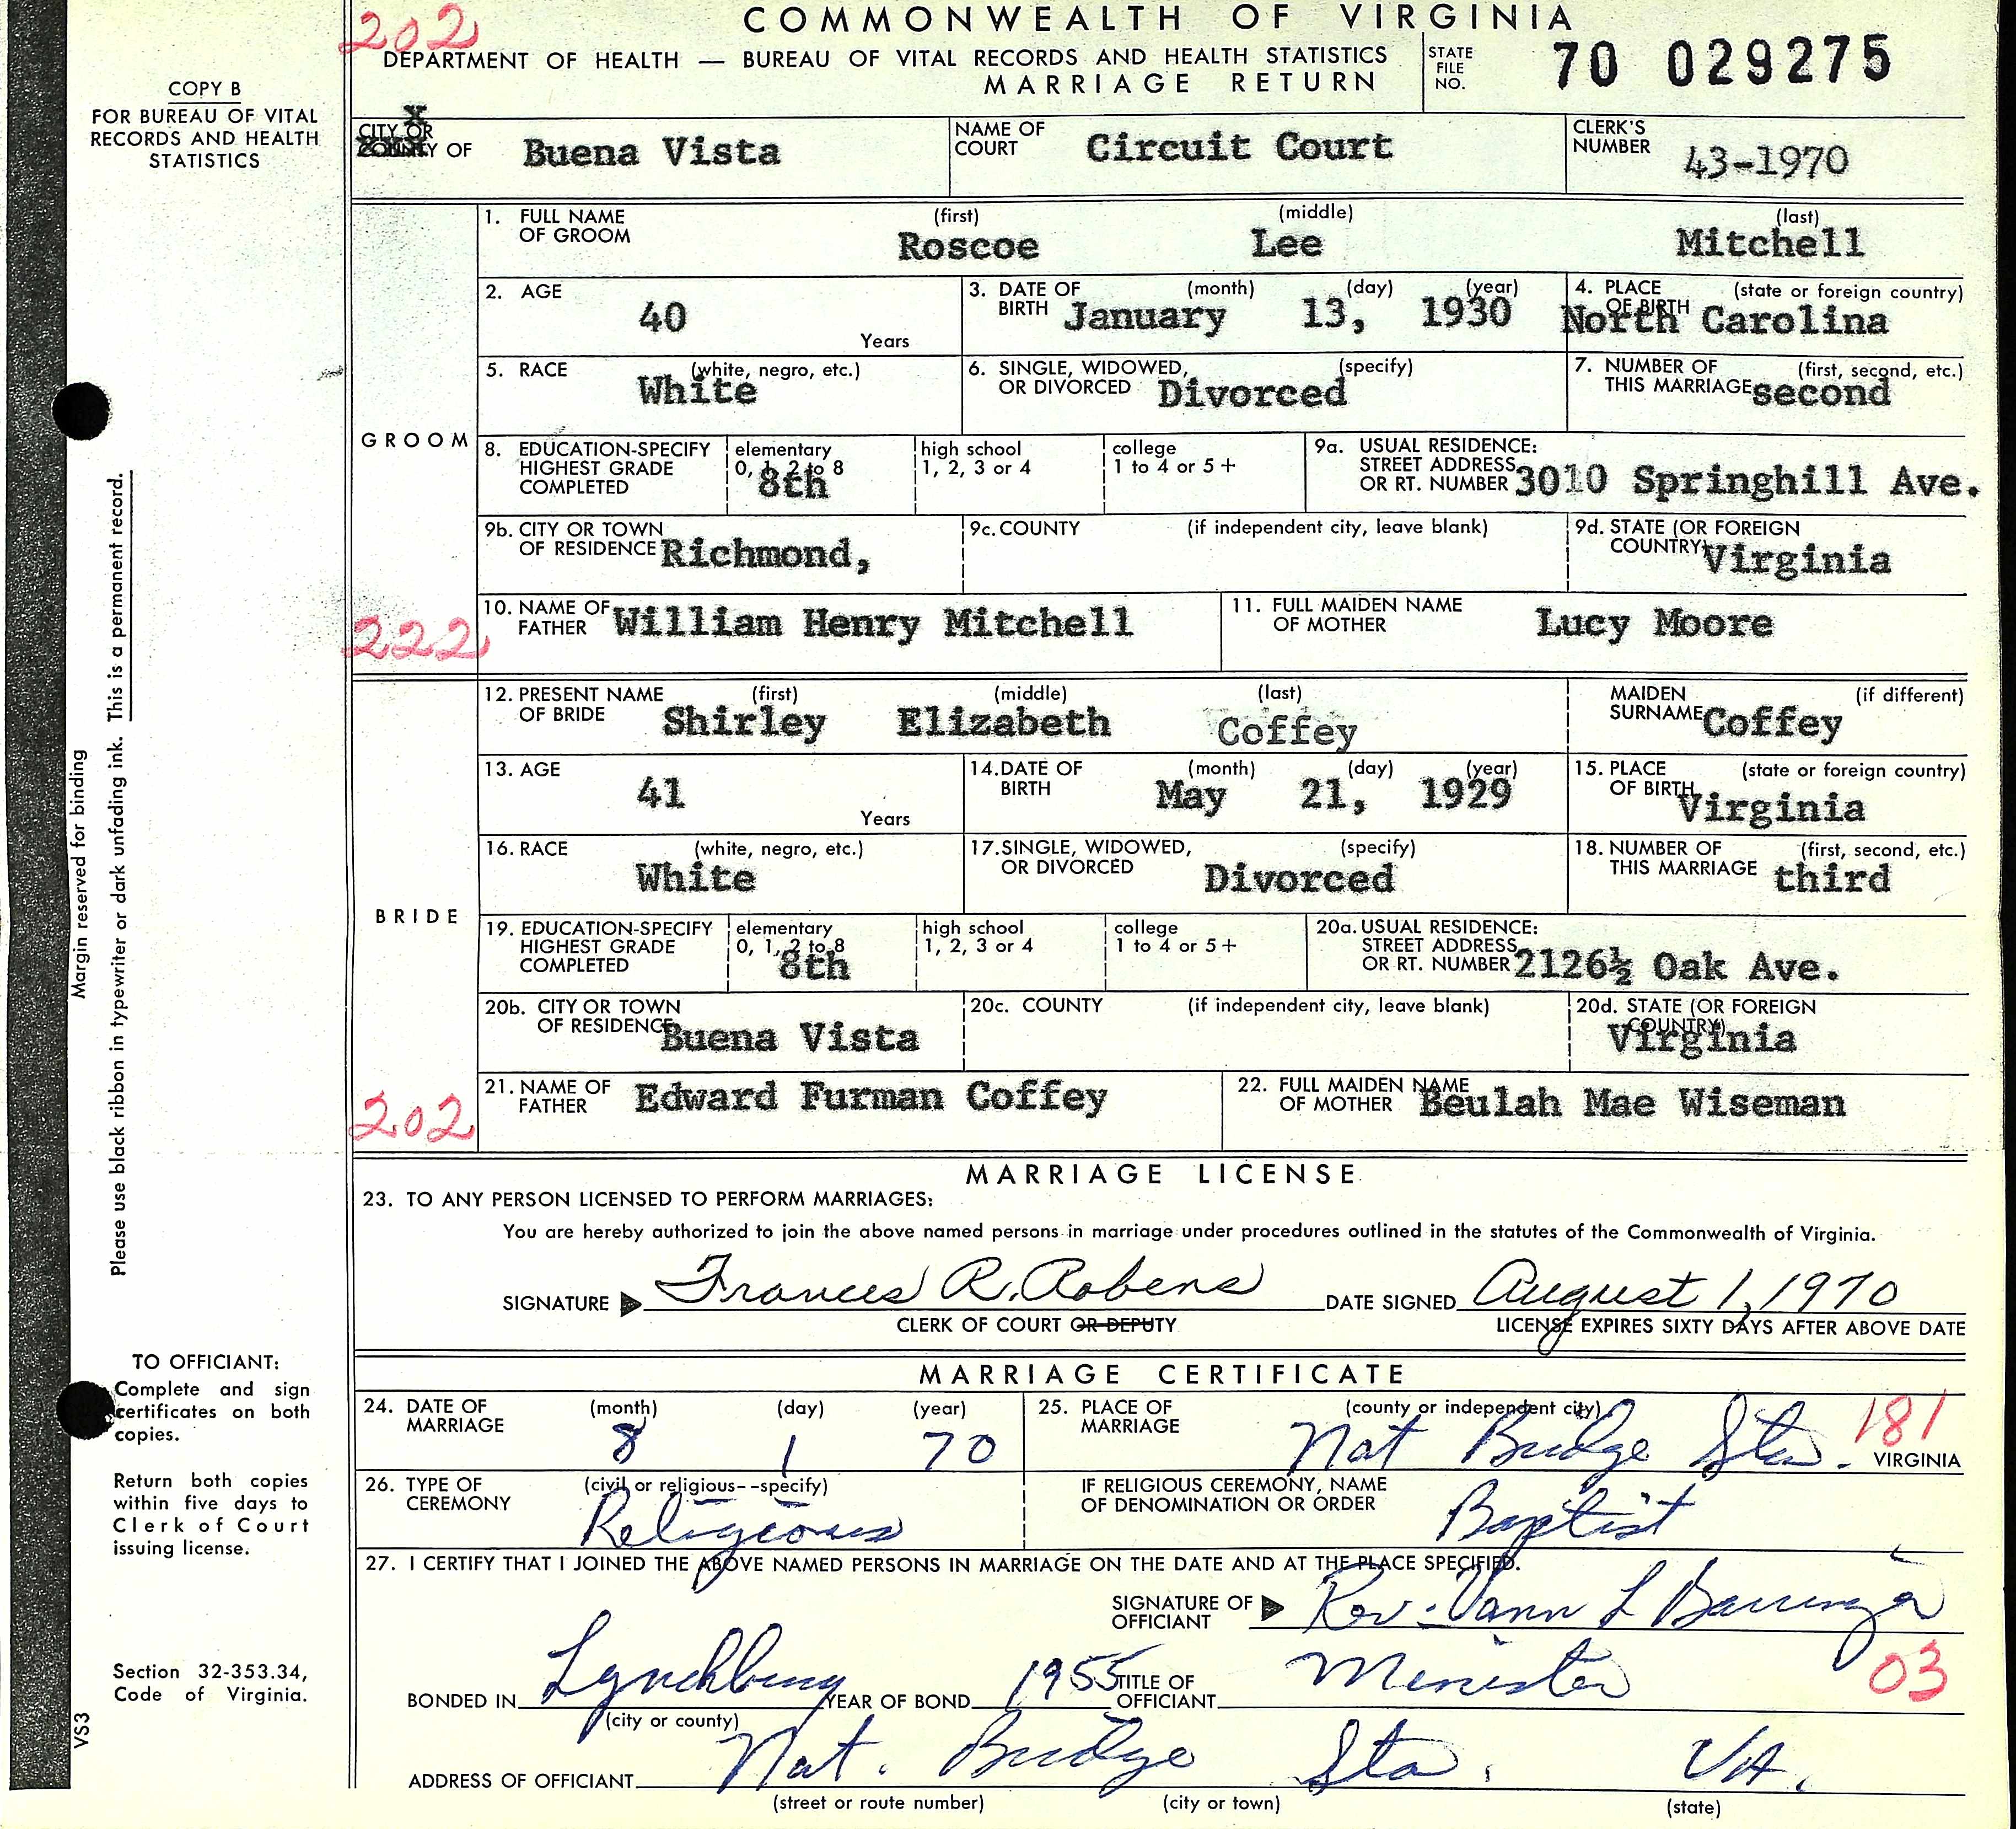 202
COMMONWEALTH OF VIRGINIA
DEPARTMENT OF HEALTH — BUREAU OF VITAL RECORDS AND HEALTH STATISTICS
MARRIAGE RETURN
STATE FILE NO. 70 029275
COPY B
FOR BUREAU OF VITAL
RECORDS AND HEALTH
STATISTICS
CITY OR COUNTY OF Buena Vista
NAME OF COURT Circuit Court
CLERK'S NUMBER 43-1970
GROOM
1. FULL NAME OF GROOM (first) Roscoe (middle) Lee (last) Mitchell
2. AGE 40 Years
3. DATE OF BIRTH (month) January (day) 13, (year) 1930
4. PLACE OF BIRTH (state or foreign country) North Carolina
5. RACE (white, negro, etc.) White
6. SINGLE, WIDOWED, OR DIVORCED (specify) Divorced
7. NUMBER OF THIS MARRIAGE (first, second, etc.) second
8. EDUCATION-SPECIFY HIGHEST GRADE COMPLETED elementary 0, 1, 2 to 8 8th high school 1, 2, 3 or 4 college 1 to 4 or 5+
9a. USUAL RESIDENCE: STREET ADDRESS OR RT. NUMBER 3010 Springhill Ave.
9b. CITY OR TOWN OF RESIDENCE Richmond,
9c. COUNTY (if independent city, leave blank)
9d. STATE (OR FOREIGN COUNTRY) Virginia
10. NAME OF FATHER William Henry Mitchell
11. FULL MAIDEN NAME OF MOTHER Lucy Moore
222
BRIDE
12. PRESENT NAME OF BRIDE (first) Shirley (middle) Elizabeth (last) Coffey
MAIDEN SURNAME (if different) Coffey
13. AGE 41 Years
14. DATE OF BIRTH (month) May (day) 21, (year) 1929
15. PLACE OF BIRTH (state or foreign country) Virginia
16. RACE (white, negro, etc.) White
17. SINGLE, WIDOWED, OR DIVORCED (specify) Divorced
18. NUMBER OF THIS MARRIAGE (first, second, etc.) third
19. EDUCATION-SPECIFY HIGHEST GRADE COMPLETED elementary 0, 1, 2 to 8 8th high school 1, 2, 3 or 4 college 1 to 4 or 5+
20a. USUAL RESIDENCE: STREET ADDRESS OR RT. NUMBER 2126½ Oak Ave.
20b. CITY OR TOWN OF RESIDENCE Buena Vista
20c. COUNTY (if independent city, leave blank)
20d. STATE (OR FOREIGN COUNTRY) Virginia
21. NAME OF FATHER Edward Furman Coffey
22. FULL MAIDEN NAME OF MOTHER Beulah Mae Wiseman
202
MARRIAGE LICENSE
23. TO ANY PERSON LICENSED TO PERFORM MARRIAGES:
You are hereby authorized to join the above named persons in marriage under procedures outlined in the statutes of the Commonwealth of Virginia.
SIGNATURE Frances R. Robens DATE SIGNED August 1, 1970
CLERK OF COURT OR DEPUTY LICENSE EXPIRES SIXTY DAYS AFTER ABOVE DATE
MARRIAGE CERTIFICATE
24. DATE OF MARRIAGE (month) 8 (day) 1 (year) 70
25. PLACE OF MARRIAGE (county or independent city) Nat Bridge Sta. 181 VIRGINIA
26. TYPE OF CEREMONY (civil or religious--specify) Religious
IF RELIGIOUS CEREMONY, NAME OF DENOMINATION OR ORDER Baptist
27. I CERTIFY THAT I JOINED THE ABOVE NAMED PERSONS IN MARRIAGE ON THE DATE AND AT THE PLACE SPECIFIED.
SIGNATURE OF OFFICIANT Rev. Vann L Barringer
03
BONDED IN Lynchburg YEAR OF BOND 1955 TITLE OF OFFICIANT Minister
(city or county)
ADDRESS OF OFFICIANT Nat. Bridge Sta. VA.
(street or route number) (city or town) (state)
Margin reserved for binding
Please use black ribbon in typewriter or dark unfading ink. This is a permanent record.
TO OFFICIANT:
Complete and sign
certificates on both
copies.
Return both copies
within five days to
Clerk of Court
issuing license.
Section 32-353.34,
Code of Virginia.
VS3